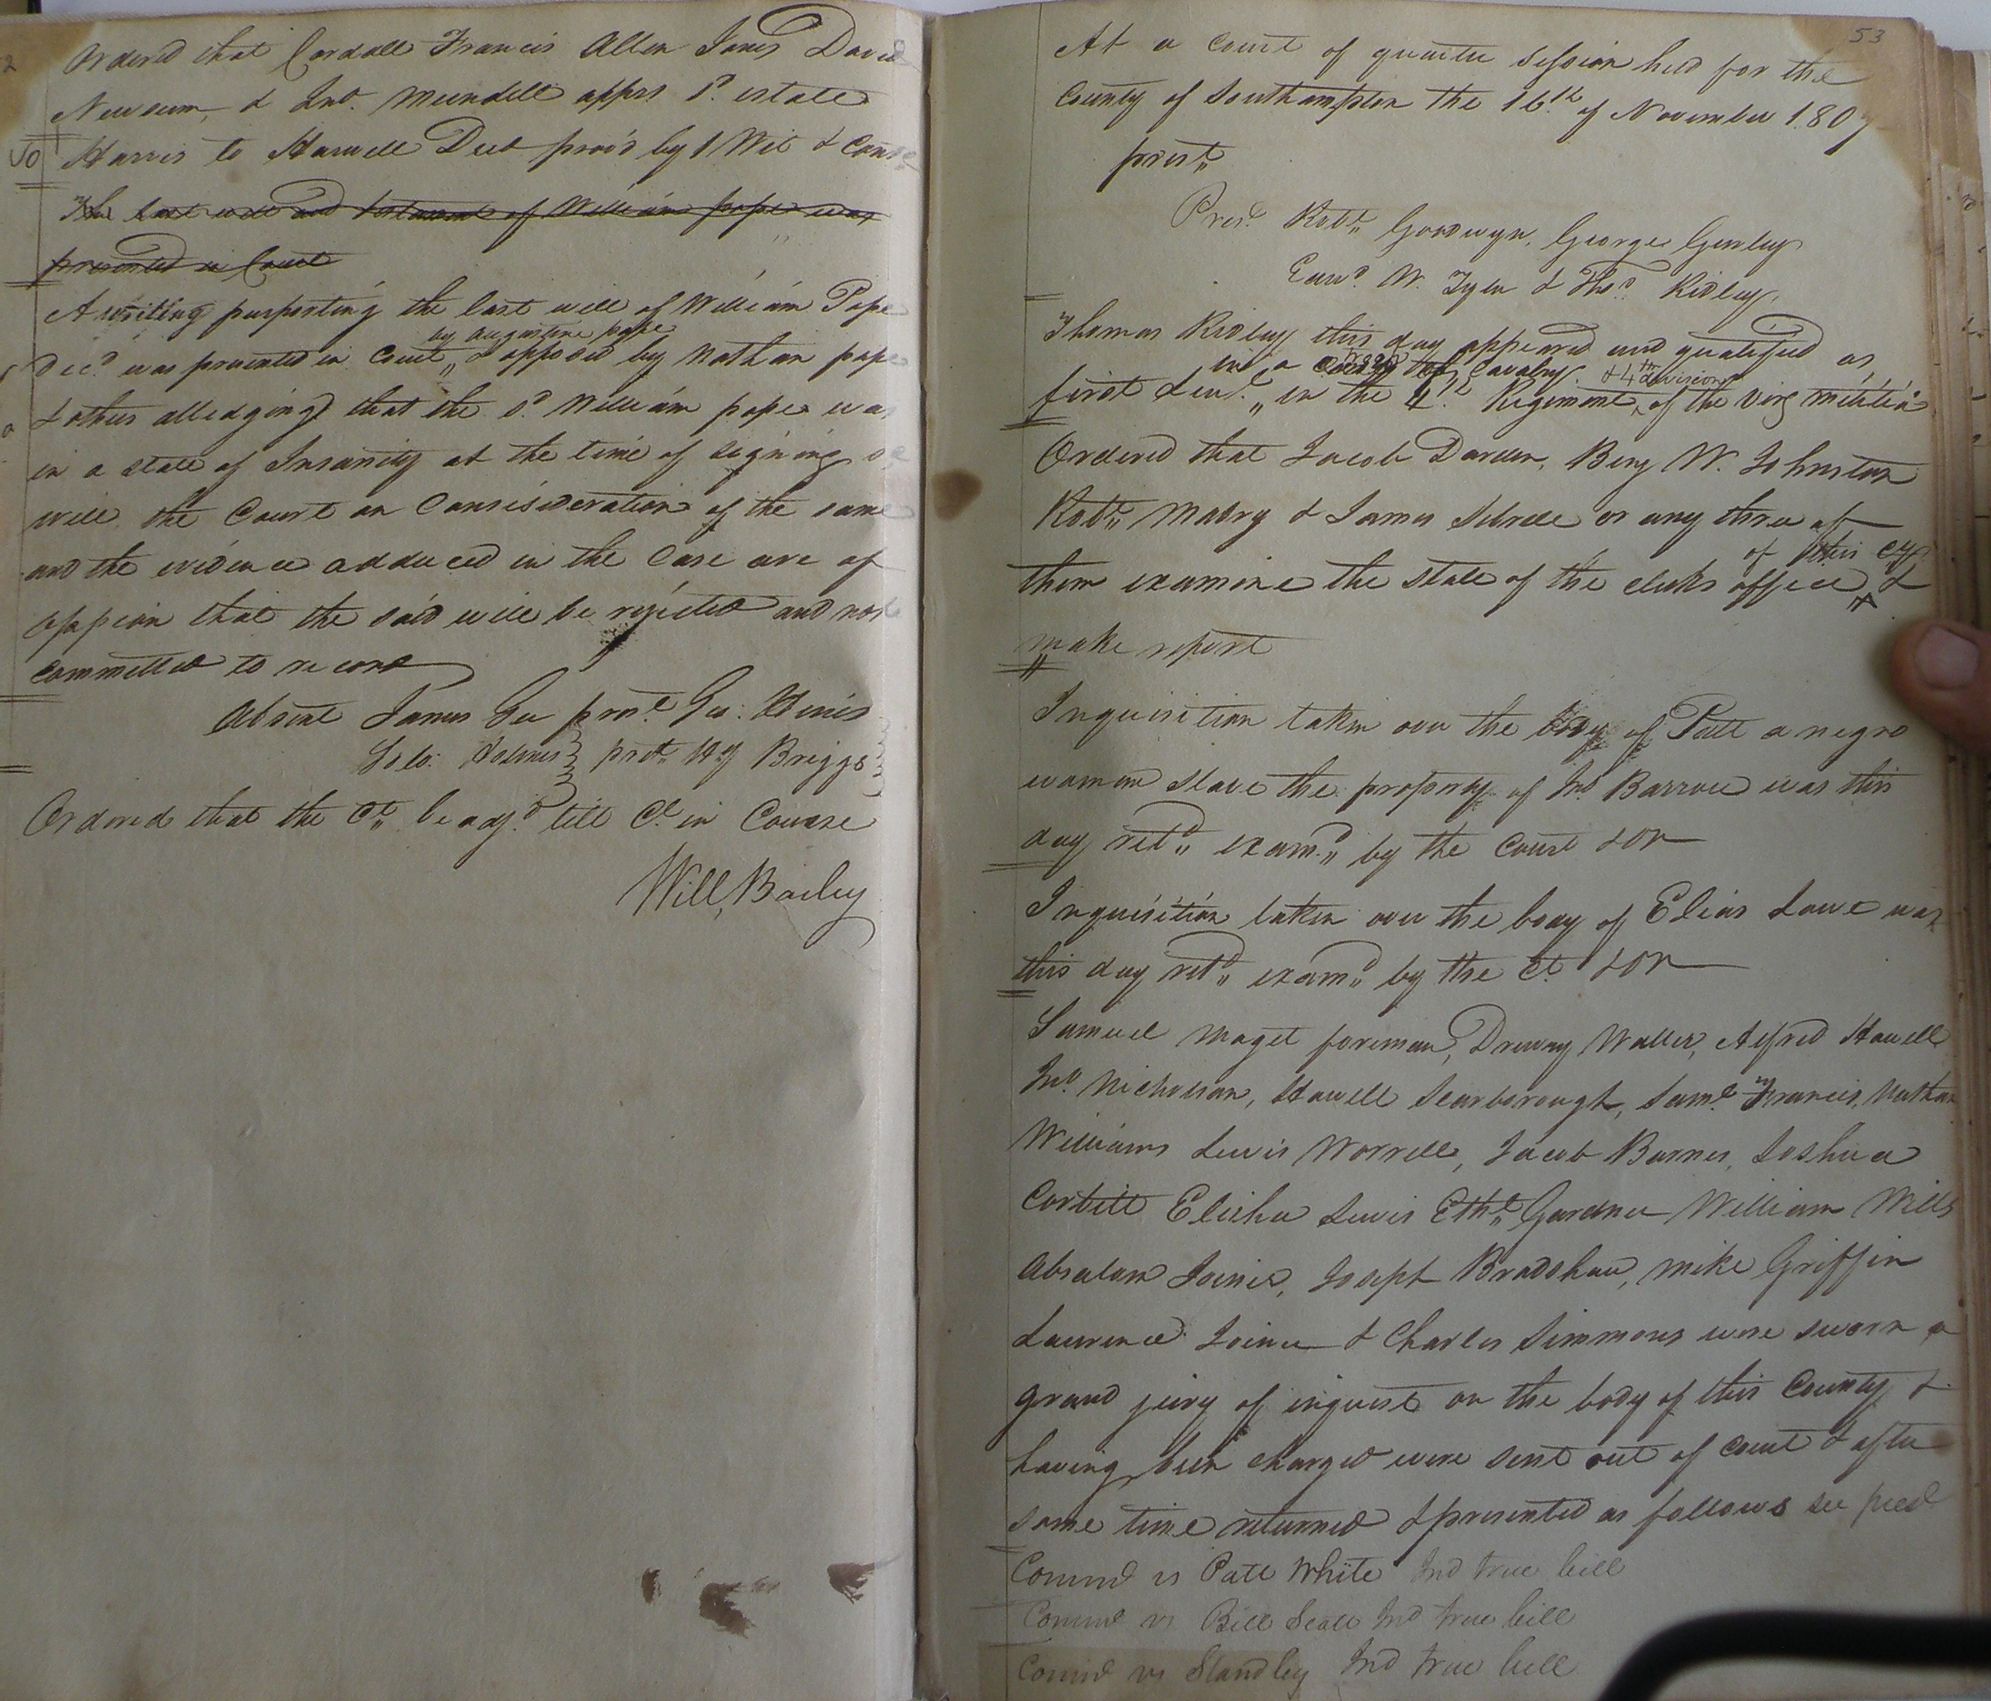 2
Ordered that Cordall Francis Allen Jones David
Newsum, & Jno. Mundell apprs sd. estate
Harris to Harwell Deed prov'd by 1 Wit & Cont
The last will and testament of William pope was
presented in Court
A writing purporting the last will of William Pope
by Augustine pope
Decd. was presented in Court & opposed by Nathan pope
& others alledging that the sd. William pope was
in a state of Insanity at the time of signing sd
will. the Court on Consisideration of the same
and the evidence adduced in the Case are of
oppion that the said will be rejected and not
committed to record
Absent James Gee prest. Ges: Hines
Solo: Holmes prst. Hy Briggs
Ordered that the Ct. be adjd. till Ct. in Course
Will, Bailey
53
At a Court of quarter Session held for the
County of Southampton the 16th. of November 1807
prest.
Pres. Robt. Goodwyn, George Gurley
Edwd. W. Tyler & Thos. Ridley
Thomas Ridley this day appeared and qualified as
in a Troop of Cavalry & 4th division
first Lieut. in the 4th. Regiment of the Virg militia
Ordered that Jacob Darden, Benj W. Johnston
Robt. Mabry & James Sebrell or any three of
of this Cty
them examine the state of the clerks office &
make report
Inquisition taken over the body of Patt a negro
woman slave the property of Jno Barrow was this
day retd. examd. by the Court & OR
Inquisition taken over the body of Elias Lowe was
this day retd. examd. by the Ct. & OR
Samuel Maget foreman, Drewry Waller, Alfred Howell
Jno. Nicholson, Howell Scarborough, Saml. Francis, Nathan
Williams Lewis Worrell, Jacob Barnes, Joshua
Corbitt Elisha Lewis Ethd. Gardner William Wills
Absalom Joiner, Joseph Bradshaw, Mike Griffin
Lawrence Joiner & Charles Simmons were sworn a
grand jury of inquest on the body of this County &
having been charged were sent out of court & after
some time returned & presented as follows see
Comnd vs Patt White Ind true bill
Comnd vs Bill Scott Ind true bill
Comnd vs Standley Ind true bill